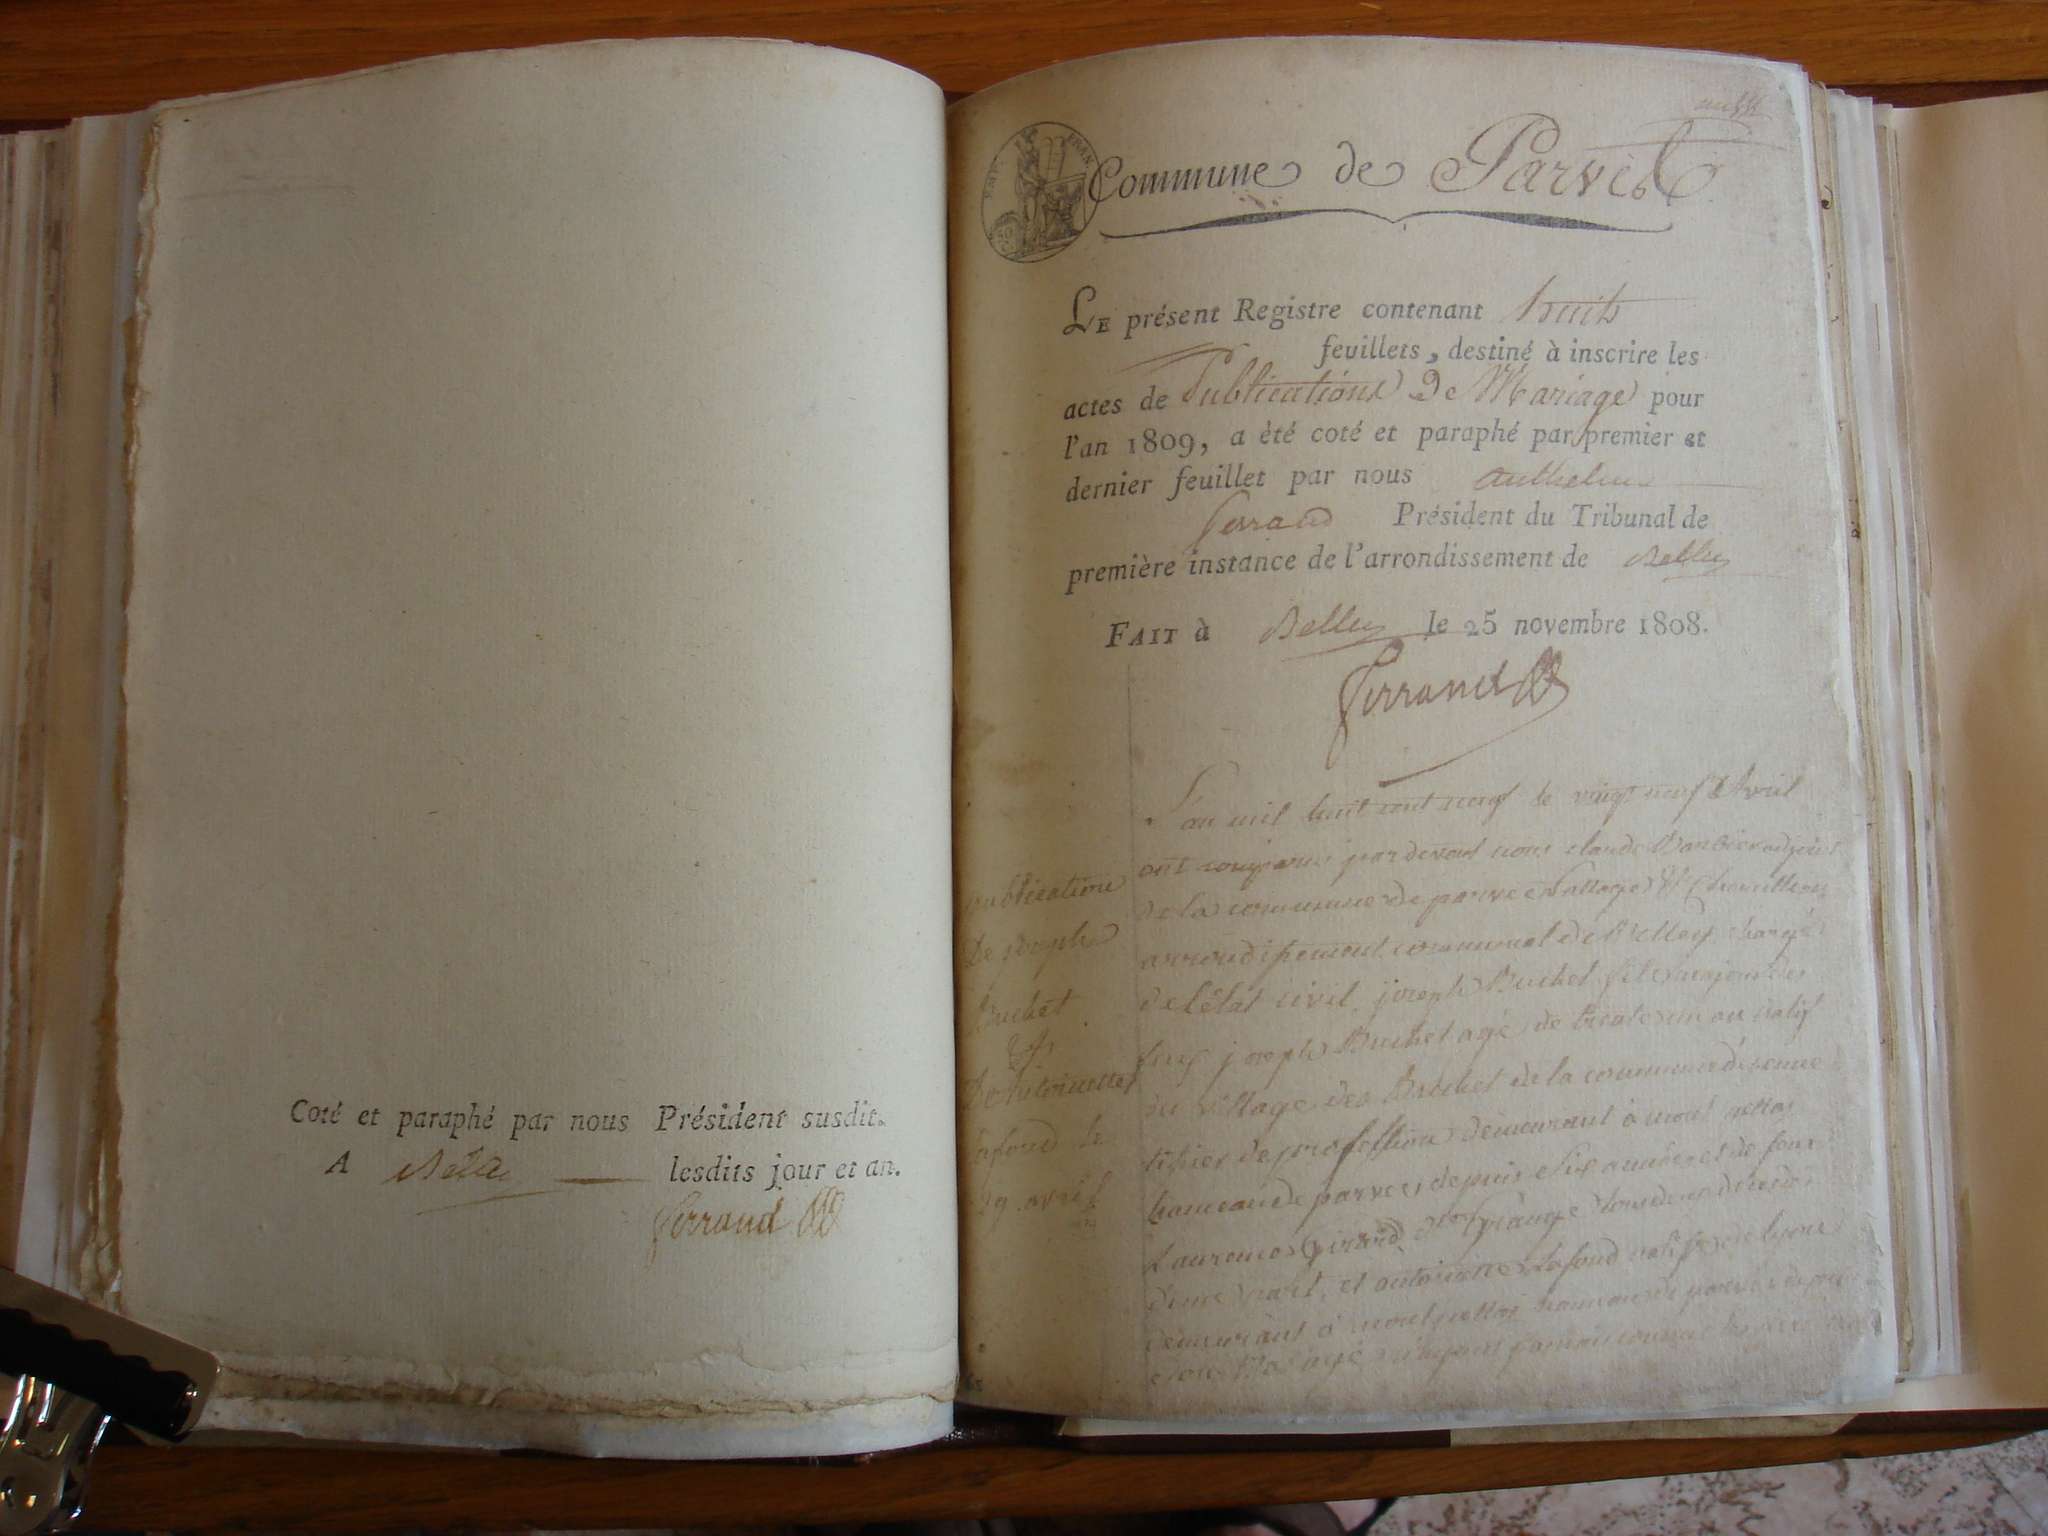 Coté et paraphé par nous Président susdit.
A lesdits jour et an.
Ferrand
EMP. FRAN.
Commune de Parves
LE présent Registre contenant huit
feuillets, destiné à inscrire les
actes de Publications De Mariage pour
l'an 1809, a èté coté et paraphé par premier et
dernier feuillet par nous Anthelme
ferrand Président du Tribunal de
première instance de l'arrondissement de Belley
FAIT à Belley le 25 novembre 1808.
Ferrand
publication
De joseph
Buchet
&
D'Antoinette
Lafond le
29 avril
L'an mil huit cent neuf le vingt neuf d'Avril
ont comparus par devant nous claude adjoint
de la commune de parve
arrondissement communal de Belley chargé
de l'état civil joseph Buchet fils majeur
feu joseph Buchet agé de trente un an natif
du village des Buchet de la commune
tissier de profession demeurant à
hameau de parves depuis six années et de feue
Laurence
d'une part, et antoinette Lafond native de lyon
demeurant à hameau de parves depuis